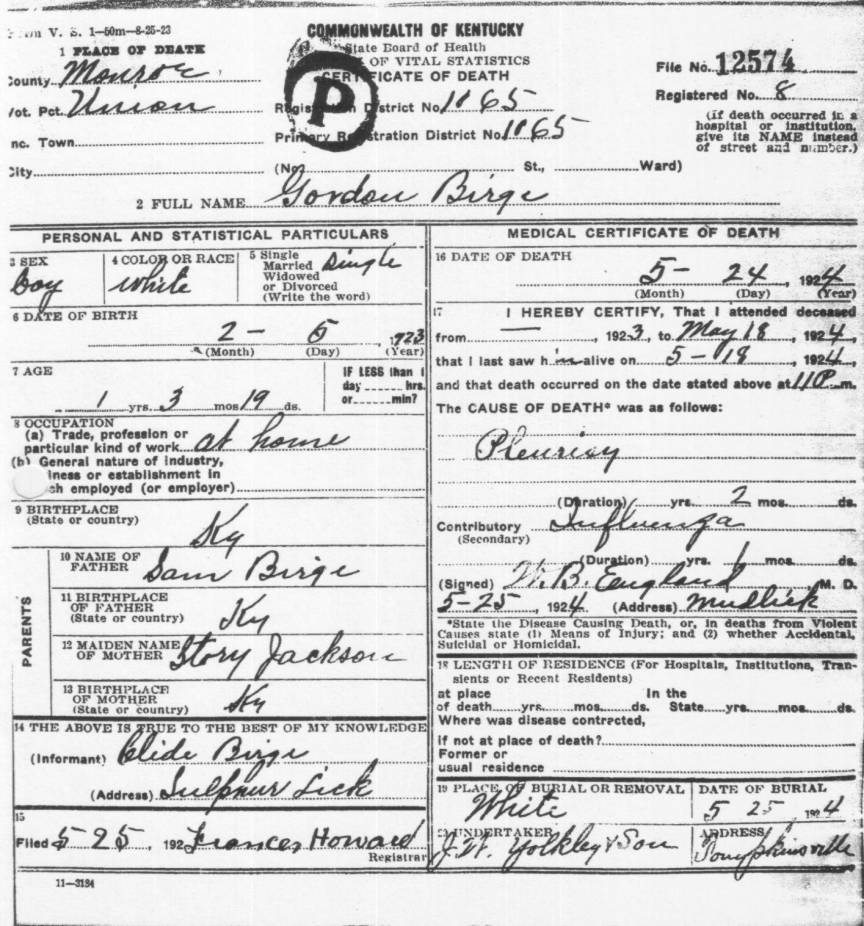 Form V. S. 1—50m—8-25-23
COMMONWEALTH OF KENTUCKY
State Board of Health
OF VITAL STATISTICS
CERTIFICATE OF DEATH
P
1 PLACE OF DEATH
County Monroe
Vot. Pct. Union
Inc. Town
City
Registration District No. 1165
Primary Registration District No. 1165
(No. St., Ward)
File No. 12574
Registered No. 8
(If death occurred in a
hospital or institution,
give its NAME instead
of street and number.)
2 FULL NAME Gordon Birge
PERSONAL AND STATISTICAL PARTICULARS
3 SEX
boy
4 COLOR OR RACE
white
5 Single
Married
Widowed
or Divorced
(Write the word)
Single
6 DATE OF BIRTH
2 - 5 1923
(Month) (Day) (Year)
7 AGE
1 yrs. 3 mos 19 ds.
IF LESS than 1
day hrs.
or min?
8 OCCUPATION
(a) Trade, profession or
particular kind of work at home
(b) General nature of industry,
iness or establishment in
ch employed (or employer)
9 BIRTHPLACE
(State or country)
Ky
PARENTS
10 NAME OF
FATHER Sam Birge
11 BIRTHPLACE
OF FATHER
(State or country) Ky
12 MAIDEN NAME
OF MOTHER Story Jackson
13 BIRTHPLACE
OF MOTHER
(State or country) Ky
14 THE ABOVE IS TRUE TO THE BEST OF MY KNOWLEDGE
(Informant) Clide Birge
(Address) Sulphur Lick
15
Filed 5-25, 192 Frances Howard
Registrar
11—3184
MEDICAL CERTIFICATE OF DEATH
16 DATE OF DEATH
5- 24, 1924
(Month) (Day) (Year)
17 I HEREBY CERTIFY, That I attended deceased
from —, 1923, to May 18, 1924,
that I last saw him alive on 5-18, 1924,
and that death occurred on the date stated above at 11P m.
The CAUSE OF DEATH* was as follows:
Pleurisy
(Duration) yrs. 2 mos. ds.
Contributory Influenza
(Secondary)
(Duration) yrs. 1 mos. ds.
(Signed) W. B. England, M. D.
5-25, 1924 (Address) Mudlick
*State the Disease Causing Death, or, in deaths from Violent
Causes state (1) Means of Injury; and (2) whether Accidental,
Suicidal or Homicidal.
18 LENGTH OF RESIDENCE (For Hospitals, Institutions, Tran-
sients or Recent Residents)
at place In the
of death yrs. mos. ds. State yrs. mos. ds.
Where was disease contracted,
if not at place of death?
Former or
usual residence
19 PLACE OF BURIAL OR REMOVAL
White
DATE OF BURIAL
5 25, 1924
20 UNDERTAKER
J.W. Yolkley & Son
ADDRESS
Tompkinsville